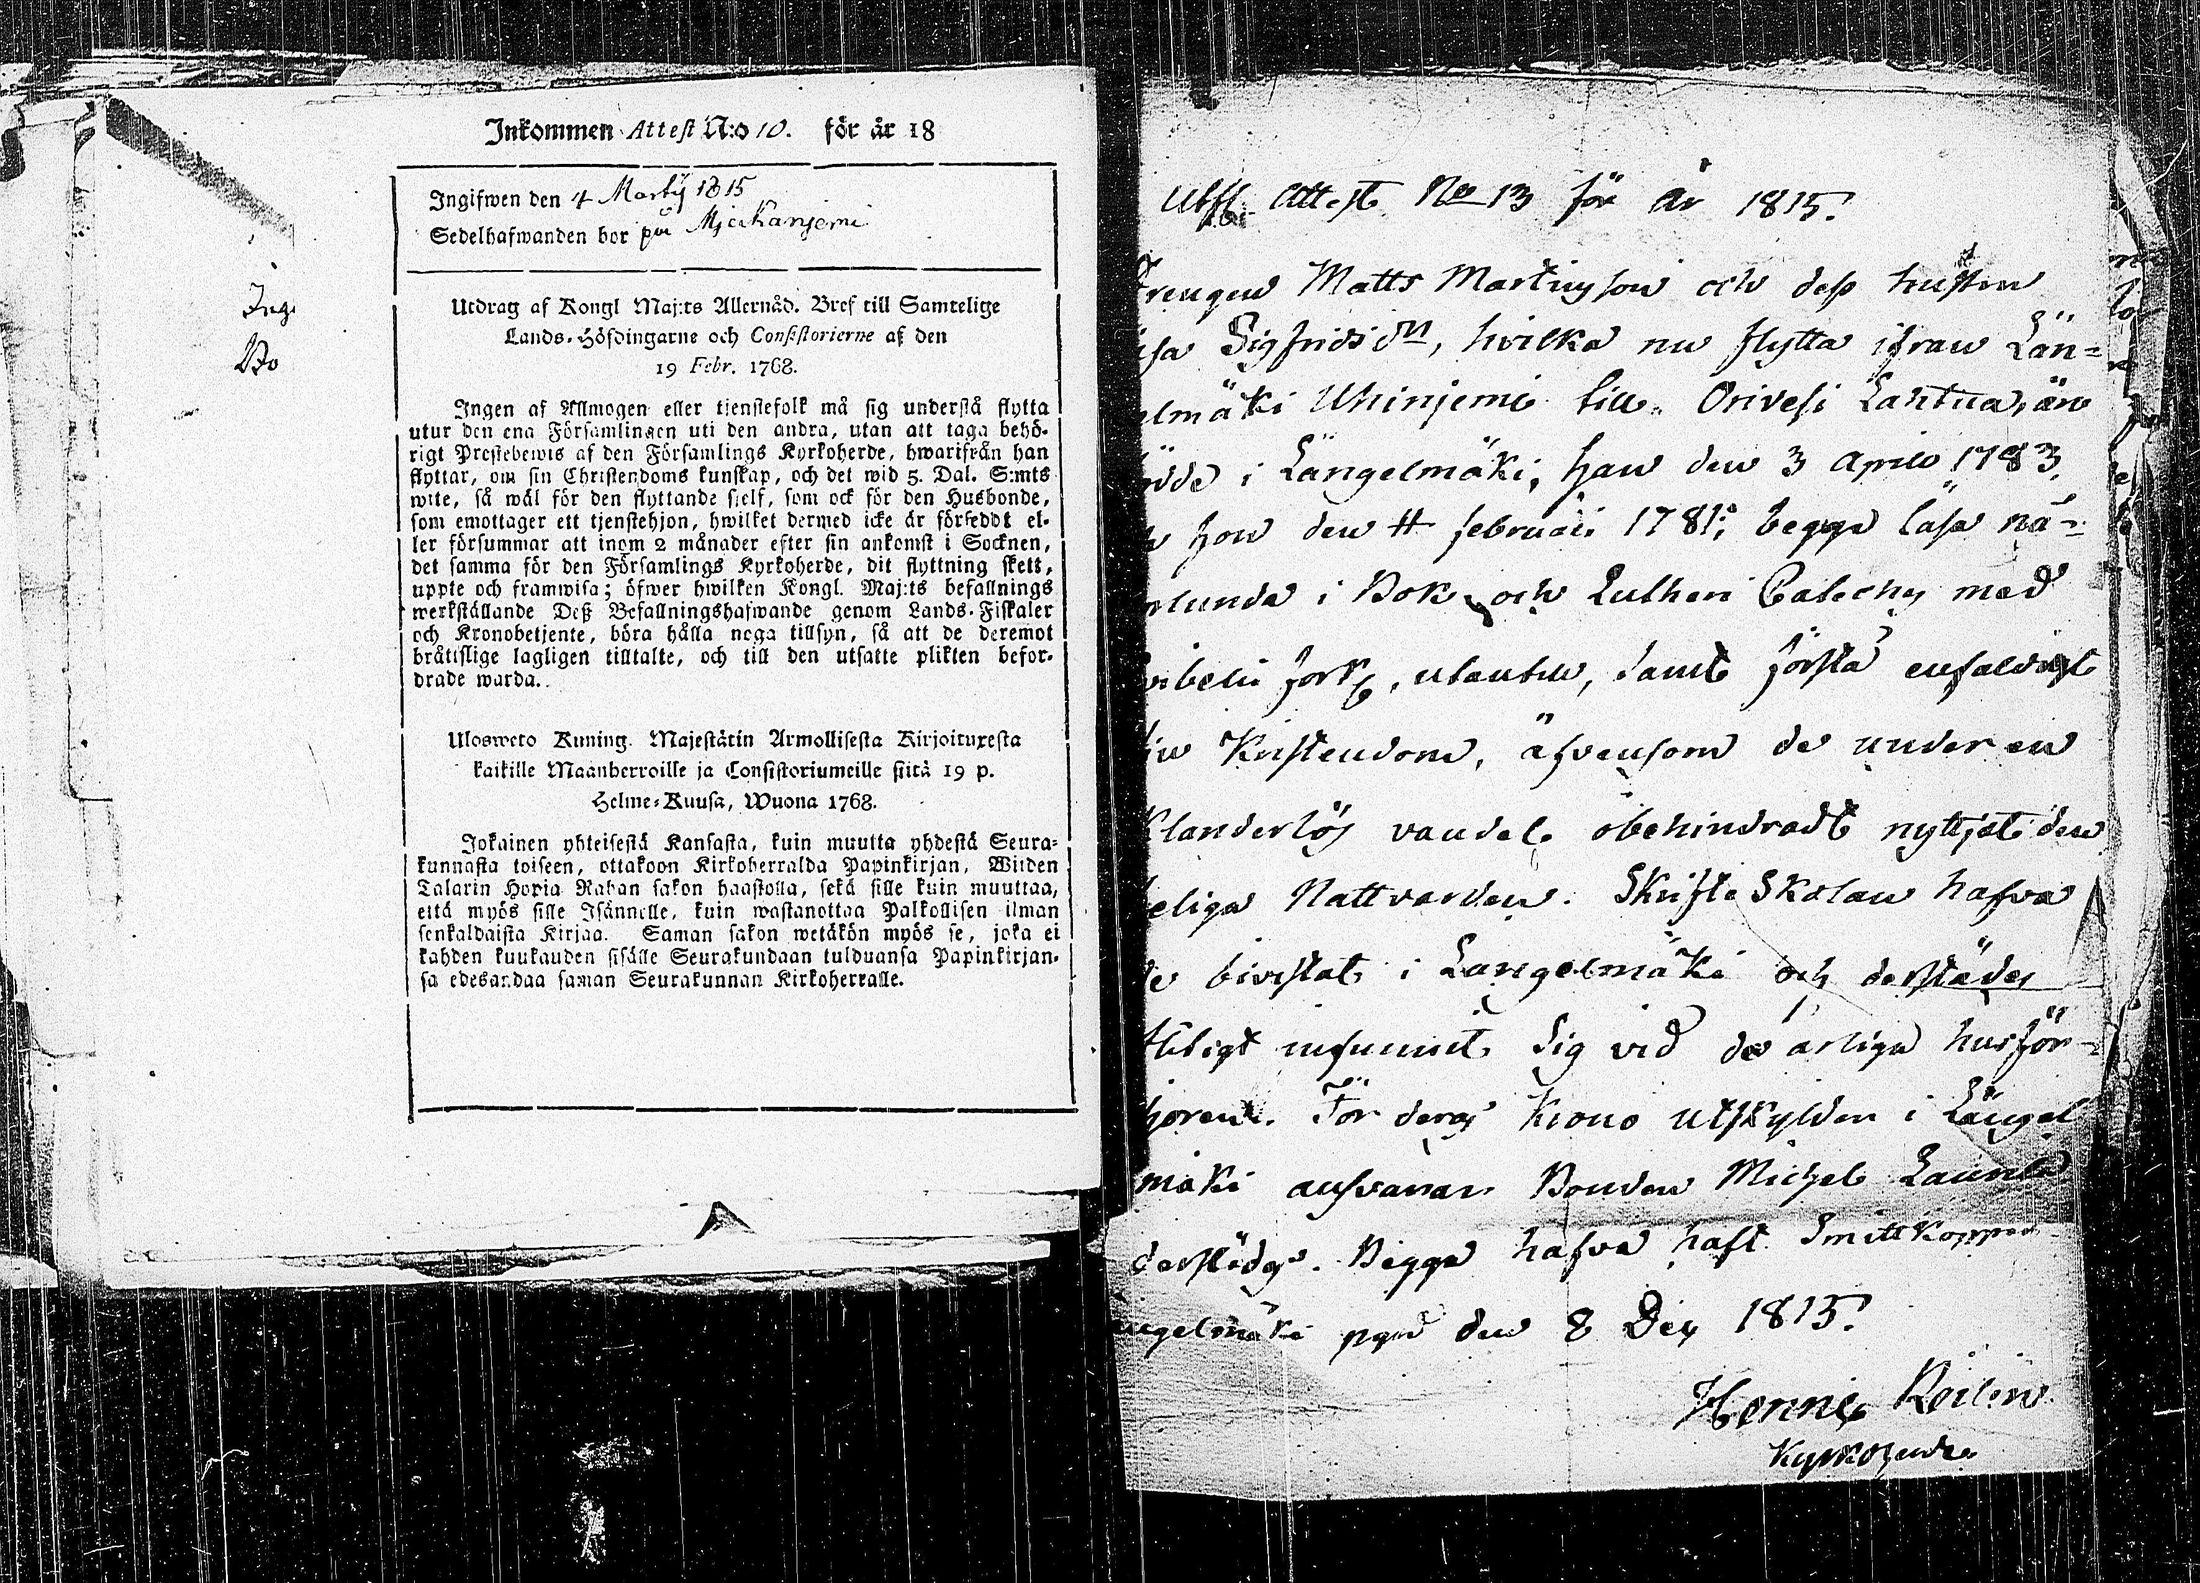 Inkommen Attest N:o 10. för år 18
Ingifwen den 4 Martij 1815
Sedelhafwanden bor på
Utdrag af Kongl Maj:ts Allernåd. Bref till Samtelige
Lands-Höfdingarne och Consistorierne af den
19 Febr. 1768.
Ingen af Allmogen eller tjenstefolk må sig understå flytta
utur den ena Församlingen uti den andra, utan att taga behö-
rigt Prestebewis af den Församlings Kyrkoherde, hwarifrån han
flyttar, om sin Christendoms kunskap, och det wid 5. Dal. S:mts
wite, så wäl för den flyttande sjelf, som ock för den Husbonde,
som emottager ett tjenstehjon, hwilket dermed icke är försedt el-
ler försummar att inom 2 månader efter sin ankomst i Socknen,
det samma för den Församlings Kyrkoherde, dit flyttning skett,
uppte och framwisa; öfwer hwilken Kongl. Maj:ts befallnings
werkställande Deß Befallningshafwande genom Lands-Fiskaler
och Kronobetjente, böra hålla noga tillsyn, så att de deremot
bråttslige lagligen tilltalte, och till den utsatte plikten befor-
drade warda.
Ulosweto Kuning. Majestätin Armollisesta Kirjoituxesta
kaikille Maanherroille ja Consistoriumeille siitä 19 p.
Helme-Kuusa, Wuona 1768.
Jokainen yhteisestä Kansasta, kuin muutta yhdestä Seura-
kunnasta toiseen, ottakoon Kirkoherralda Papinkirjan, Wiiden
Talarin Hopia Rahan sakon haastolla, sekä sille kuin muuttaa,
että myös sille Isännelle, kuin wastanottaa Palkollisen ilman
senkaldaista Kirjaa. Saman sakon wetäkön myös se, joka ei
kahden kuukauden sisälle Seurakundaan tulduansa Papinkirjan-
sa edesandaa saman Seurakunnan Kirkoherralle.
Ing
Bo
Attest No 13 för år 1815.
Matts Martinsson och dess hustru
Sigfridsdr, hvilka nu flytta ifrån Län=
elmäki Uhinjemi till Orivesi Lahtua, än
i Längelmäki, han den 3 April 1783,
hon den 4 februari 1781; begge läsa nö-
i Bok och Lutheri Catech med
forkl, utantill, samt förstå enfaldigt
Kristendom, äfvensom de under en
Klanderlös vandel obehindradt nyttjat den
eliga Nattvarden. SkriftSkolan hafva
de bivistat i Längelmäki och derstädes
flitigt infunnit sig vid de årliga husför-
hören. För deras Krono utskylder i Längel
mäki ansvarar Bonden Michel
derstädes. Begge hafva haft Smittkoppor
ngelmäki pgrd den 8 Dec 1815.
Henric
Kyrkoherde